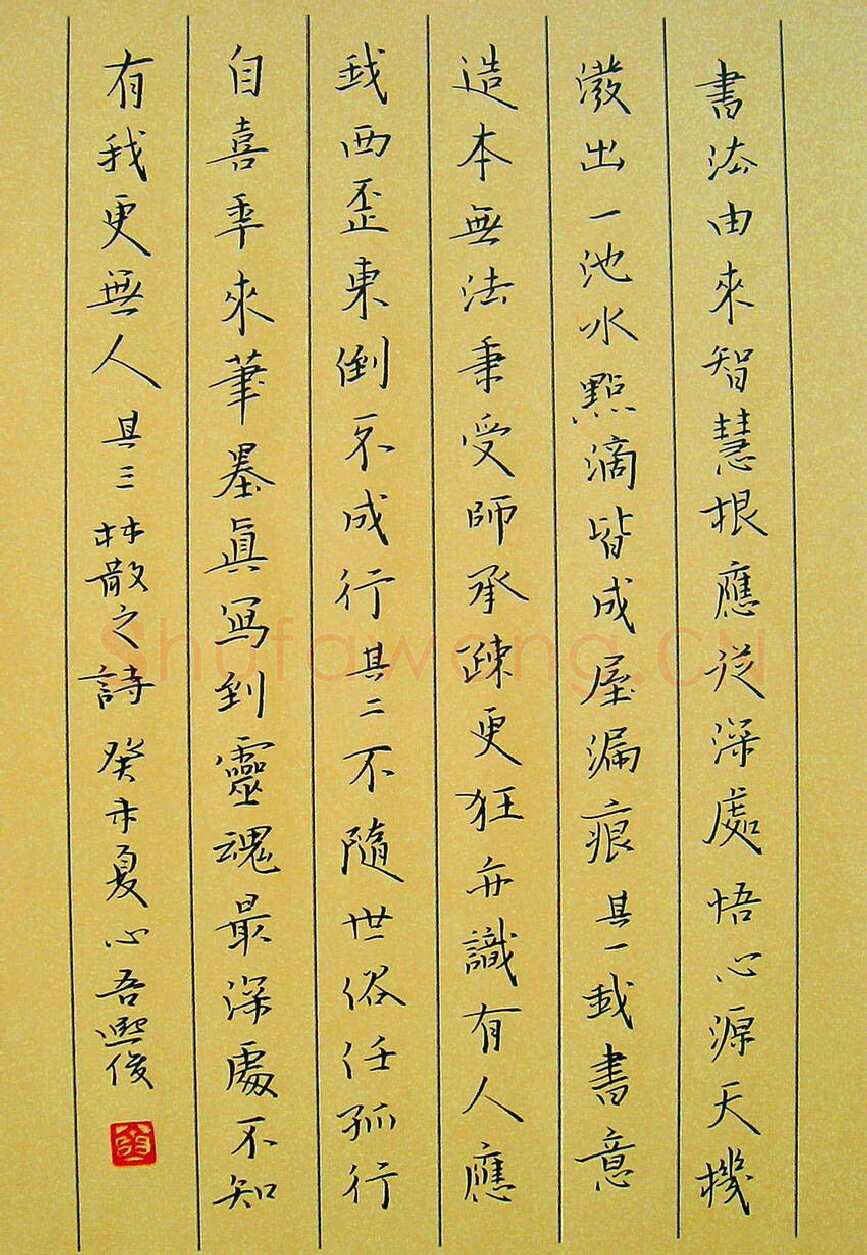 書法由來智慧根應從深處悟心源天機
潑出一池水點滴皆成屋漏痕其一我書意
造本無法秉受師承疎更狂亦識有人應
我西歪東倒不成行其二不隨世俗任孤行
自喜年來筆墨真写到靈魂最深處不知
有我更無人其三林散之詩癸未夏心吾熙俊
Shufawang.cn